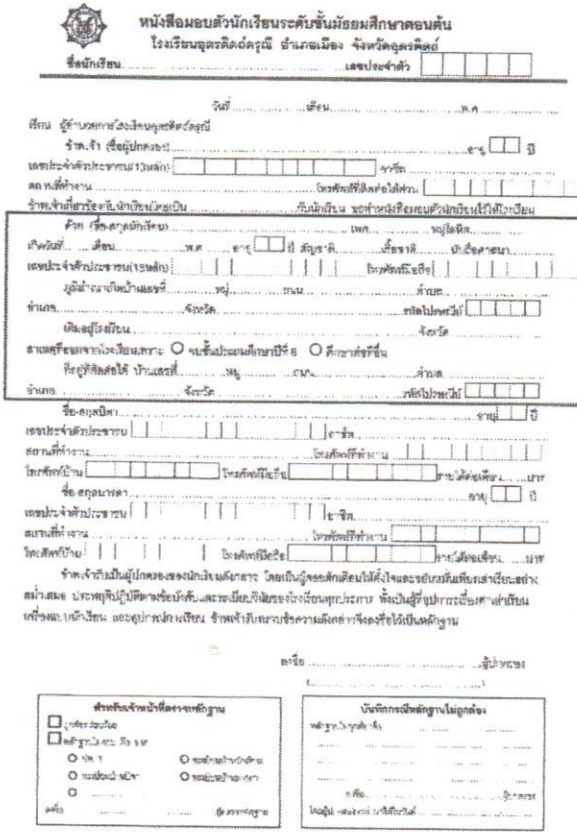 หนังสือมอบตัวนักเรียนระดับชั้นมัธยมศึกษาตอนต้น
โรงเรียนอุตรดิตถ์ดรุณี อำเภอเมือง จังหวัดอุตรดิตถ์
ชื่อนักเรียน เลขประจำตัว
วันที่ เดือน พ.ศ
เรียน ผู้อำนวยการโรงเรียนอุตรดิตถ์ดรุณี
ข้าพเจ้า (ชื่อผู้ปกครอง) อายุ ปี
เลขประจำตัวประชาชน(13หลัก) อาชีพ
สถานที่ทำงาน โทรศัพท์ที่ติดต่อได้ด่วน
ข้าพเจ้าเกี่ยวข้องกับนักเรียนโดยเป็น กับนักเรียน ขอทำหนังสือมอบตัวนักเรียนไว้ให้โรงเรียน
ด้วย (ชื่อ-สกุลนักเรียน) เพศ หมู่โลหิต
เกิดวันที่ เดือน พ.ศ อายุ ปี สัญชาติ เชื้อชาติ นับถือศาสนา
เลขประจำตัวประชาชน(13หลัก) โทรศัพท์มือถือ
ภูมิลำเนาเกิดบ้านเลขที่ หมู่ ถนน ตำบล
อำเภอ จังหวัด รหัสไปรษณีย์
เดิมอยู่โรงเรียน จังหวัด
สาเหตุที่ออกจากโรงเรียนเพราะ จบชั้นประถมศึกษาปีที่ 6 ศึกษาต่อที่อื่น
ที่อยู่ที่ติดต่อได้ บ้านเลขที่ หมู่ ถนน ตำบล
อำเภอ จังหวัด รหัสไปรษณีย์
ชื่อ-สกุลบิดา อายุ ปี
เลขประจำตัวประชาชน อาชีพ
สถานที่ทำงาน โทรศัพท์ที่ทำงาน
โทรศัพท์บ้าน โทรศัพท์มือถือ รายได้ต่อเดือน บาท
ชื่อ-สกุลมารดา อายุ ปี
เลขประจำตัวประชาชน อาชีพ
สถานที่ทำงาน โทรศัพท์ที่ทำงาน
โทรศัพท์บ้าน โทรศัพท์มือถือ รายได้ต่อเดือน บาท
ข้าพเจ้ารับเป็นผู้ปกครองของนักเรียนดังกล่าว โดยเป็นผู้คอยตักเตือนให้ตั้งใจและขยันหมั่นเพียรเล่าเรียนอย่าง
สม่ำเสมอ ประพฤติปฏิบัติตามข้อบังคับและระเบียบวินัยของโรงเรียนทุกประการ ทั้งเป็นผู้ที่อุปการะเรื่องค่าเล่าเรียน
เครื่องแบบนักเรียน และอุปกรณ์การเรียน ข้าพเจ้ารับทราบข้อความดังกล่าวจึงลงชื่อไว้เป็นหลักฐาน
ลงชื่อ ผู้ปกครอง
สำหรับเจ้าหน้าที่ตรวจหลักฐาน
ถูกต้องเรียบร้อย
ปพ. 1
ลงชื่อ ผู้ตรวจหลักฐาน
บันทึกกรณีหลักฐานไม่ถูกต้อง
ลงชื่อ ผู้ปกครอง